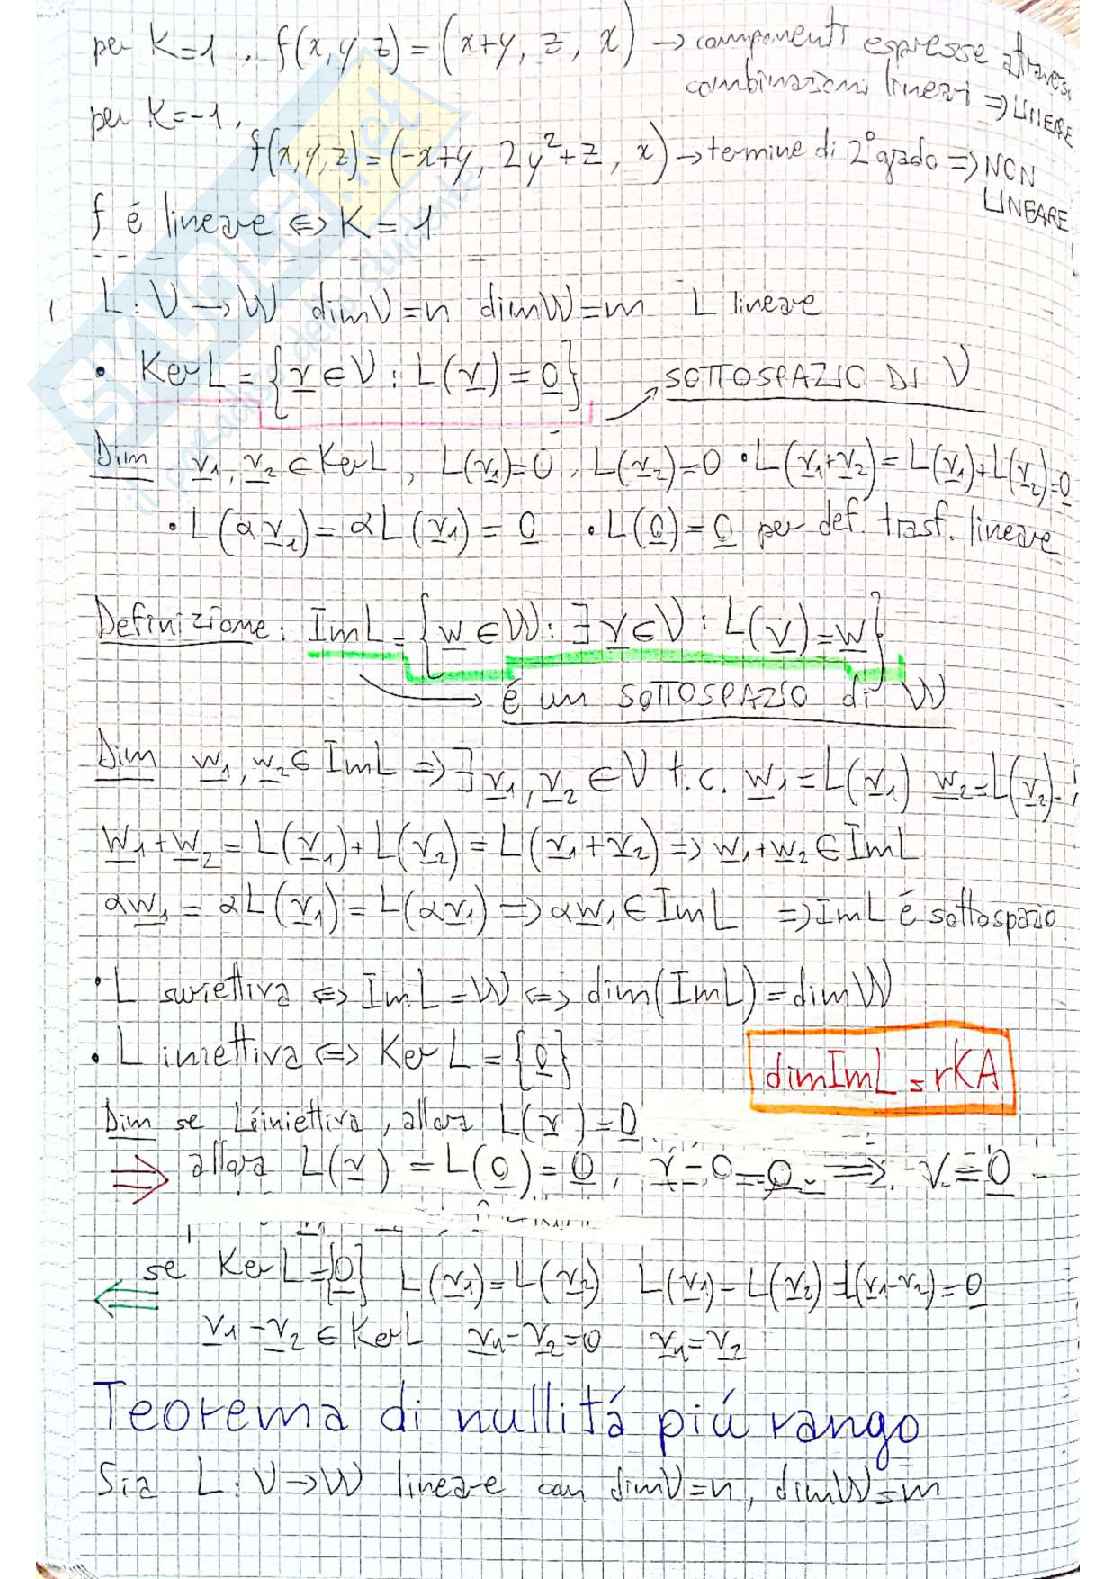 per K=1 , f(x,y,z) = (x+y, z, x) → componenti espresse attraverso
combinazioni lineari ⇒ LINEARE
per K=-1,
f(x,y,z)=(-x+y, 2y²+z, x) → termine di 2° grado ⇒ NON
LINEARE
f é lineare ⇔ K = 1
L: V → W dimV=n dimW=m L lineare
• KerL = {v ∈ V : L(v) = 0} → SOTTOSPAZIO DI V
Dim v1, v2 ∈ KerL, L(v1)=0, L(v2)=0 • L(v1+v2) = L(v1)+L(v2)=0
• L(αv1) = αL(v1) = 0 • L(0) = 0 per def. trasf. lineare
Definizione: ImL = {w ∈ W: ∃ v ∈ V : L(v) = w}
→ é un SOTTOSPAZIO di W
Dim w1, w2 ∈ ImL ⇒ ∃ v1, v2 ∈ V t.c. w1 = L(v1) w2=L(v2)
w1 + w2 = L(v1)+L(v2) = L(v1+v2) ⇒ w1+w2 ∈ ImL
αw1 = αL(v1) = L(αv1) ⇒ αw1 ∈ ImL ⇒ ImL é sottospazio
• L suriettiva ⇔ ImL=W ⇔ dim(ImL)=dimW
• L iniettiva ⇔ KerL = {0}
dimImL = rKA
Dim se L iniettiva, allora L(v)=0
⇒ allora L(v) = L(0) = 0, ⇒ v = 0
⇐ se KerL={0} L(v1)=L(v2) L(v1)-L(v2)=L(v1-v2)=0
v1-v2 ∈ KerL v1-v2=0 v1=v2
Teorema di nullitá piú rango
Sia L: V→W lineare con dimV=n, dimW=m